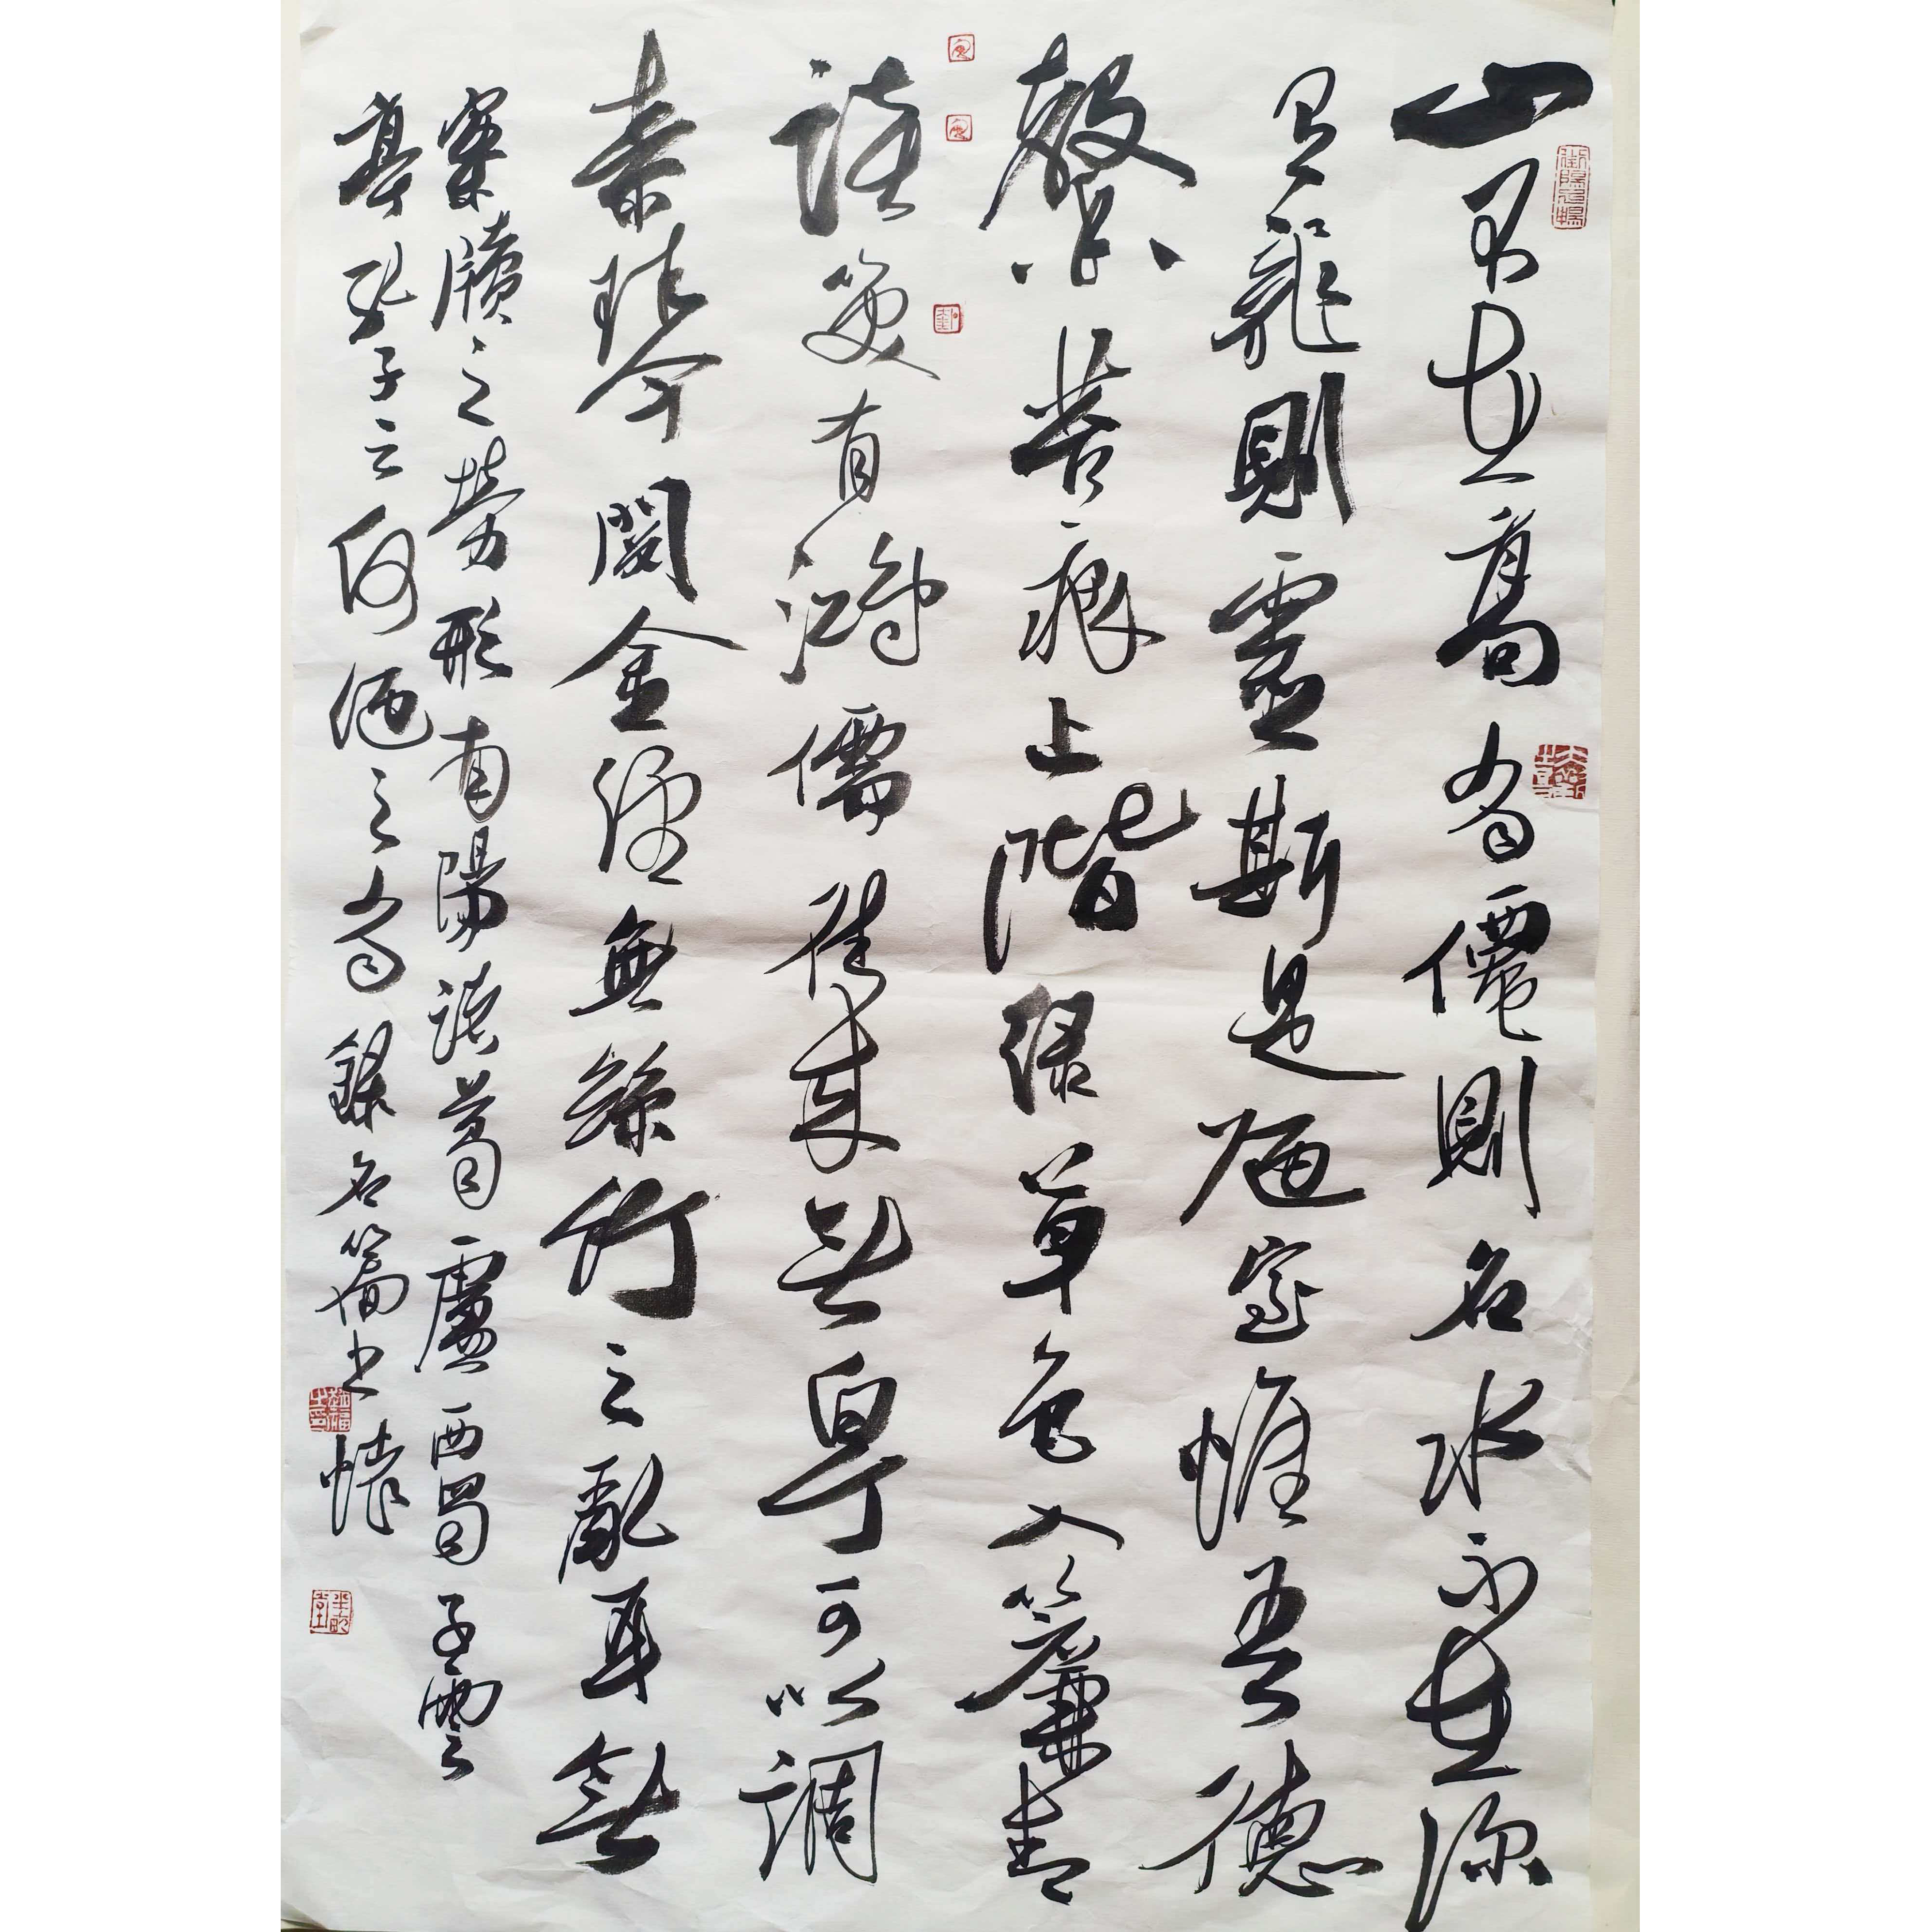 山不在高有僊則名水不在深
有龍則靈斯是陋室惟吾德
馨苔痕上階綠草色入簾青
談笑有鴻儒往來無白丁可以調
素琴閱金經無絲竹之亂耳無
案牘之勞形南陽諸葛廬西蜀子雲
亭孔子云何陋之有錄名篇書懷